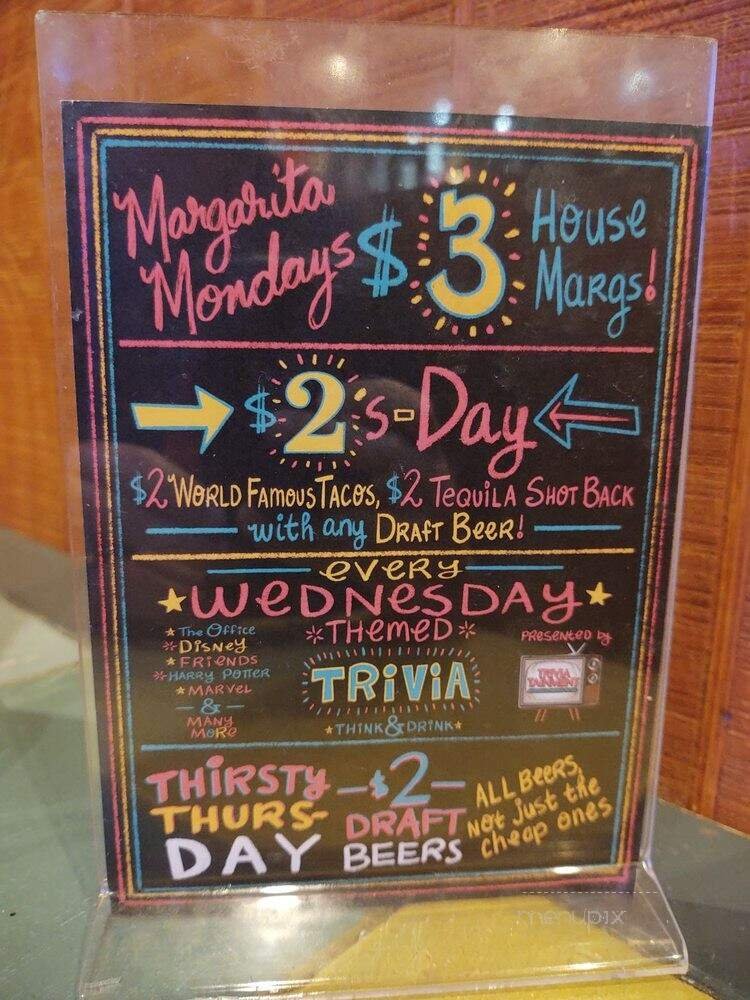 Margarita Mondays
$3
House Margs!
$2s-Day
$2 World Famous Tacos, $2 Tequila Shot Back
with any Draft Beer!
every
Wednesday
Themed
TRiViA
*Think & Drink*
*The Office
*Disney
*Friends
*Harry Potter
*Marvel
- & -
Many
More
Presented by
TRIVIA
TAINMENT
THiRSTY
THURS-
DAY
-$2-
DRAFT
BEERS
ALL BEERS,
Not just the
cheap ones
menupix